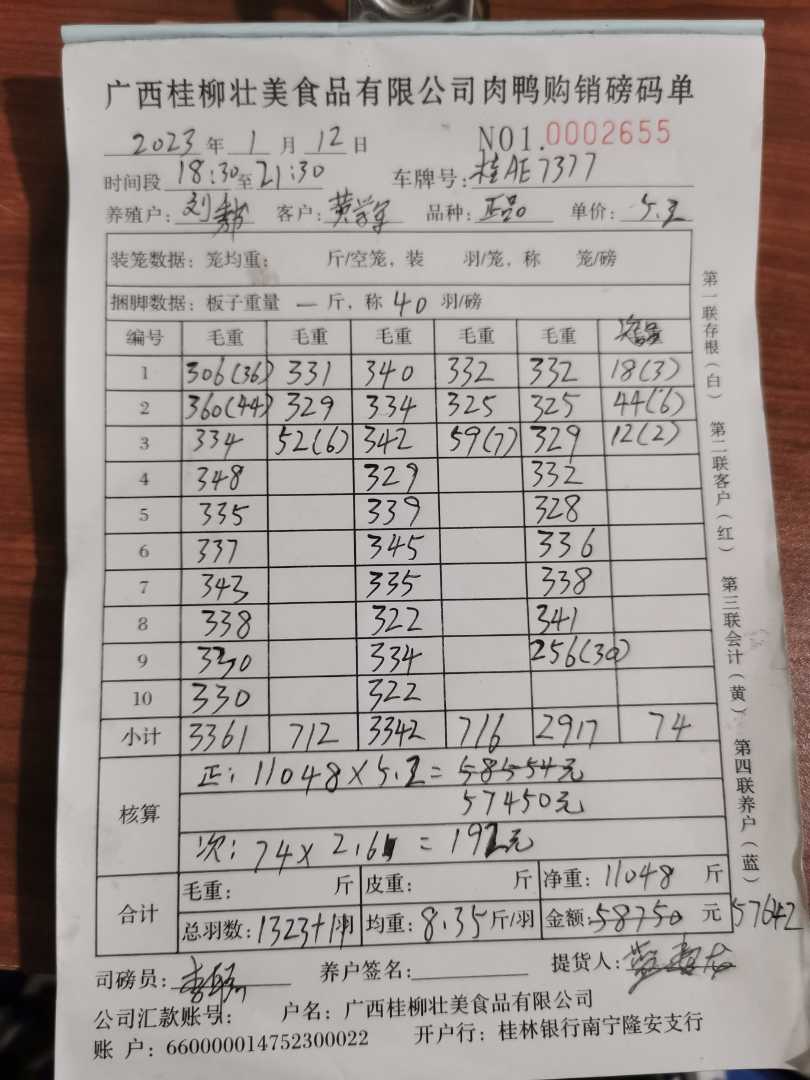 广西桂柳壮美食品有限公司肉鸭购销磅码单
2023 年 1 月 12 日 NO1. 0002655
时间段 18:30 至 21:30 车牌号: 桂AE7377
养殖户: 刘 客户: 黄学军 品种: 正品 单价: 5.2
装笼数据: 笼均重: 斤/空笼, 装 羽/笼, 称 笼/磅
捆脚数据: 板子重量 — 斤, 称 40 羽/磅
编号 毛重 毛重 毛重 毛重 毛重
1 306(36) 331 340 332 332 18(3)
2 360(44) 329 334 325 325 44(6)
3 334 52(6) 342 59(7) 329 12(2)
4 348 329 332
5 335 339 328
6 337 345 336
7 343 335 338
8 338 322 341
9 330 334 256(30)
10 330 322
小计 3361 712 3342 716 2917 74
核算 正: 11048×5.2=58554元
57450元
次: 74×2.6=192元
合计 毛重: 斤 皮重: 斤 净重: 11048 斤
总羽数: 1323+1羽 均重: 8.35斤/羽 金额: 58750 元 57642
司磅员: 养户签名: 提货人:
公司汇款账号: 户名: 广西桂柳壮美食品有限公司
账 户: 660000014752300022 开户行: 桂林银行南宁隆安支行
第一联存根(白) 第二联客户(红) 第三联会计(黄) 第四联养户(蓝)